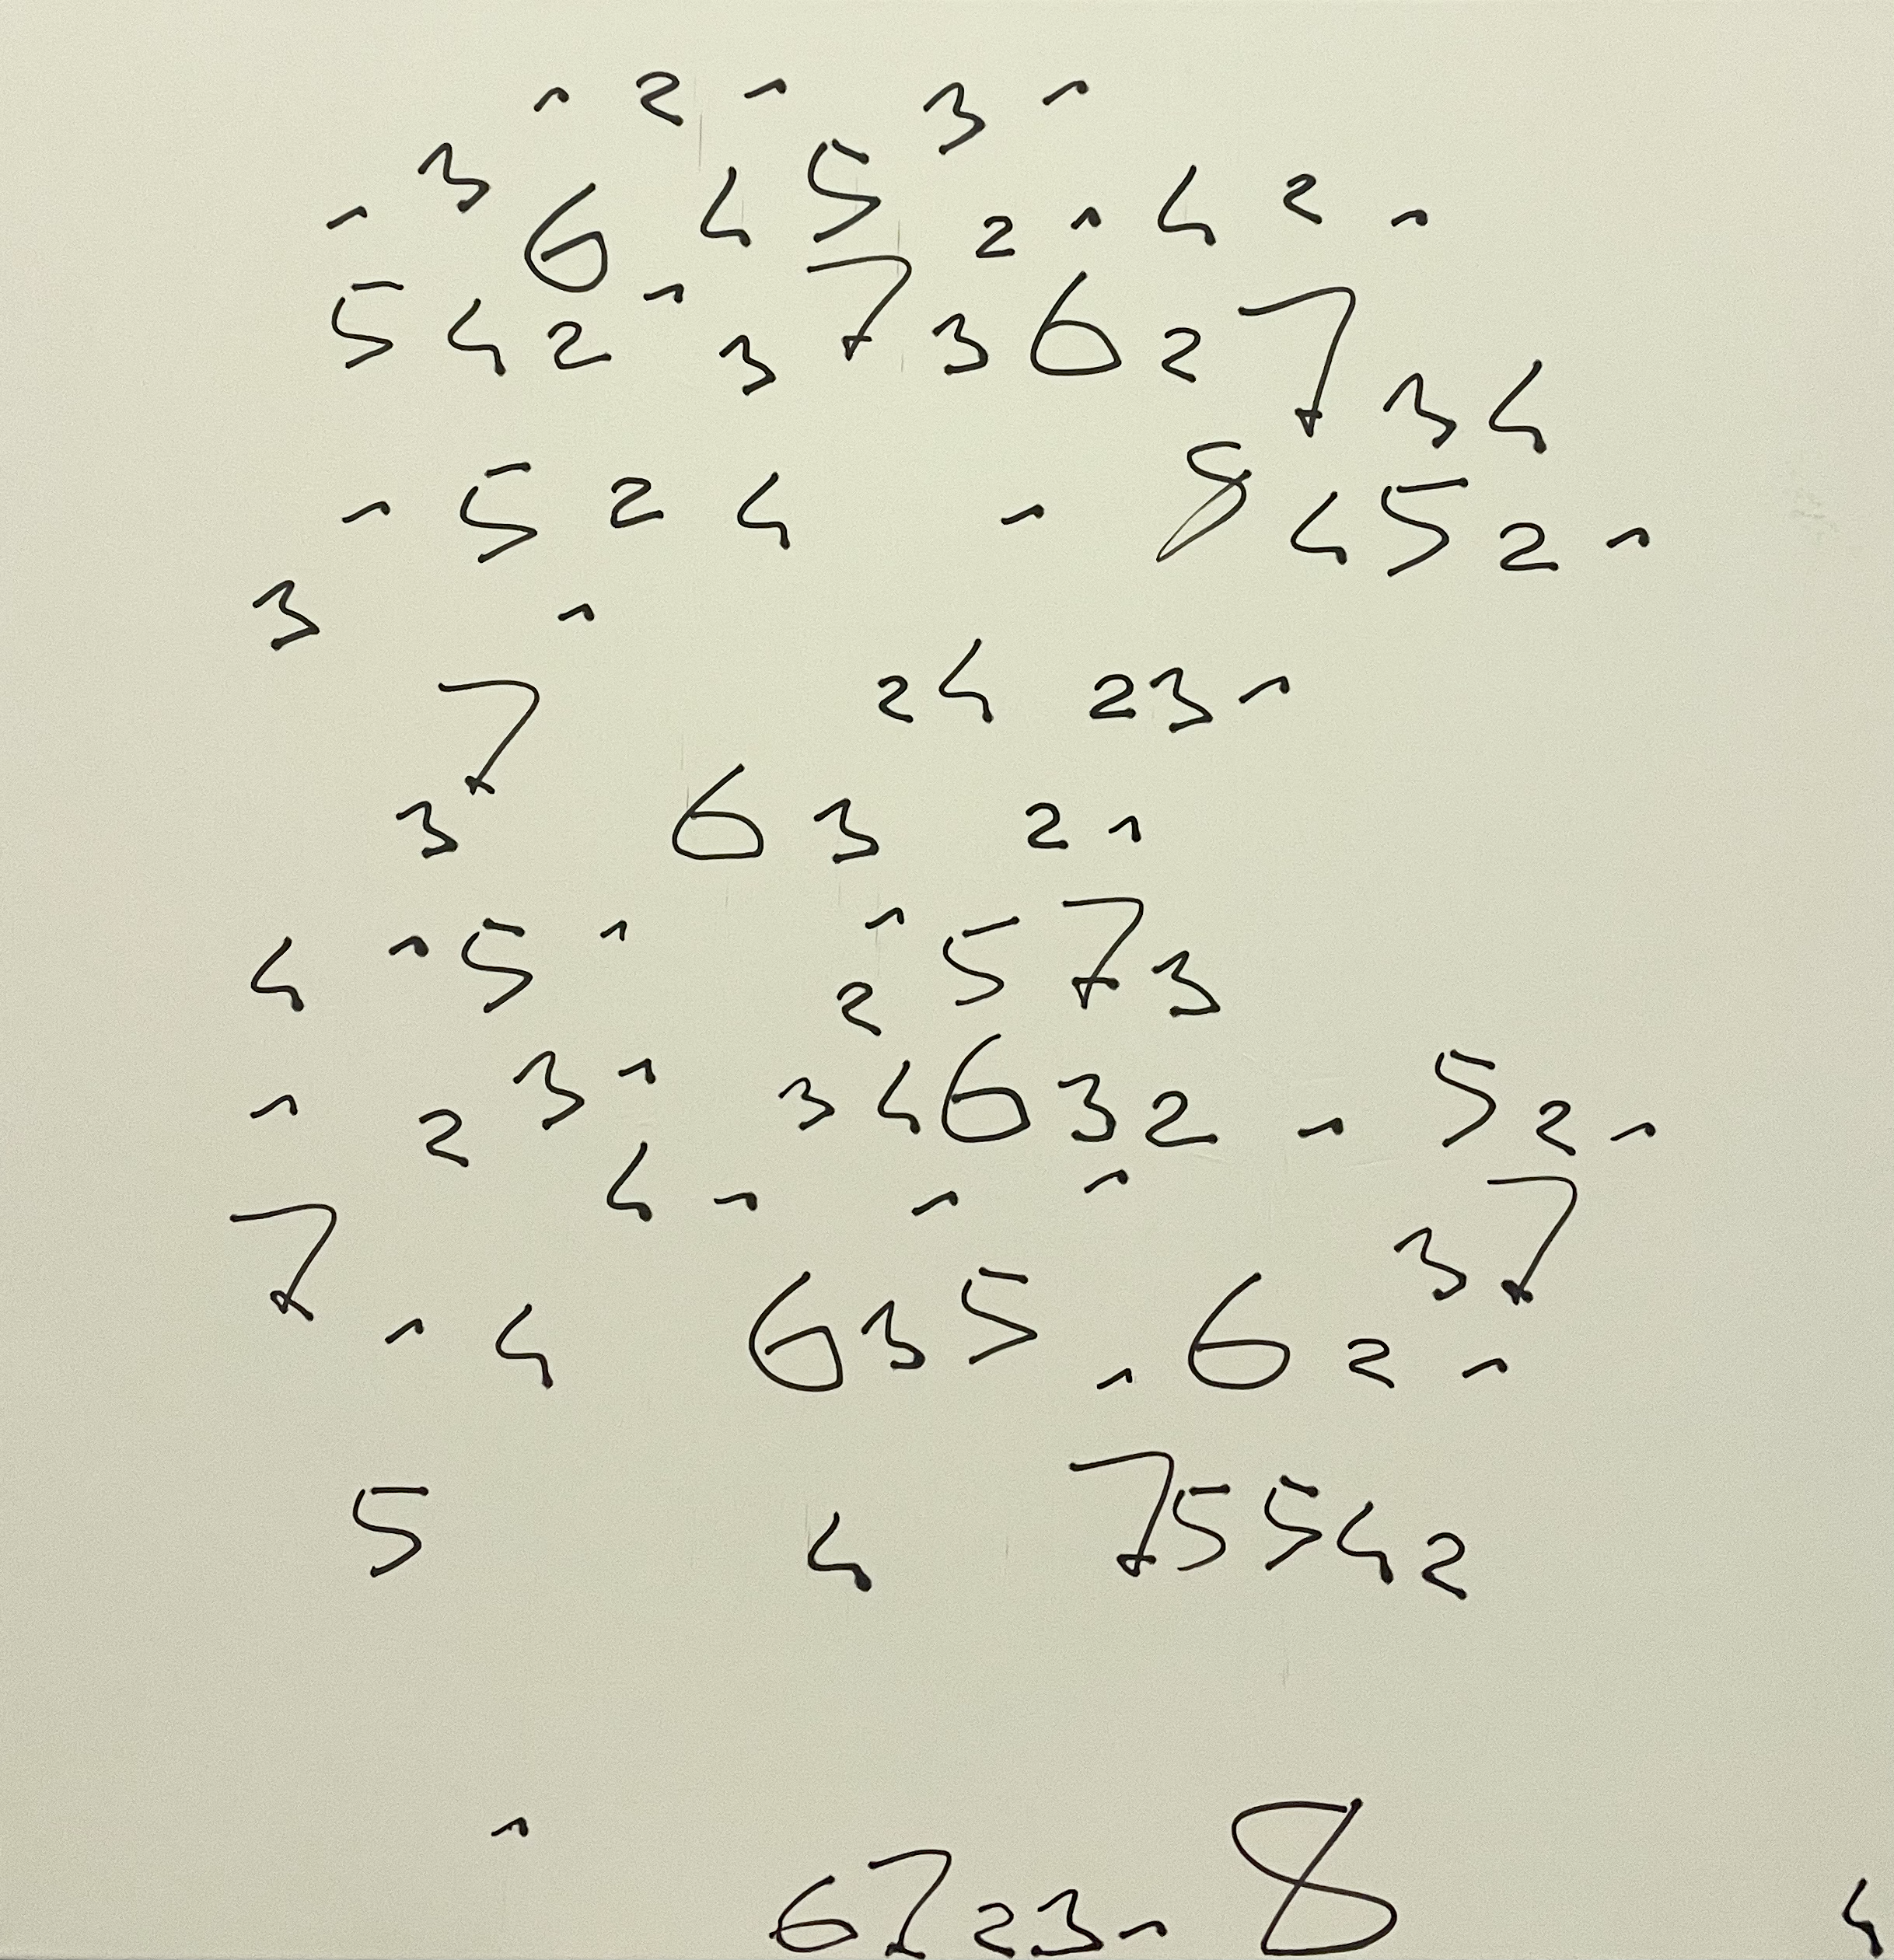 1 2 1 3 1
1 3 6 4 5 2 1 4 2 1
5 4 2 1 3 7 3 6 2 7 3 4
1 5 2 4 1 8 4 5 2 1
3 1
7 2 4 2 3 1
3 6 3 2 1
4 1 5 1 2 1 5 7 3
1 2 3 1 3 4 6 3 2 1 5 2 1
4 1 1 1
7 1 4 6 3 5 1 6 2 1 3 7
5 4 7 5 5 4 2
1
6 7 2 3 1 8 4